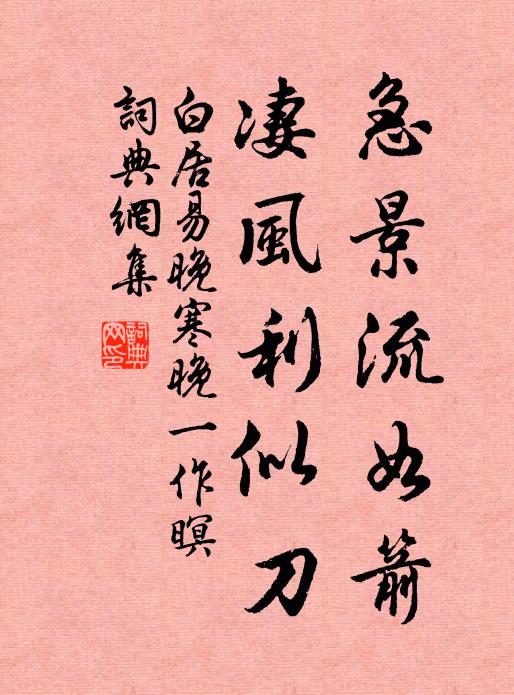 急景流如箭
凄風利似刀
白居易晚寒晚一作暝
詞典網集
詞典
网印